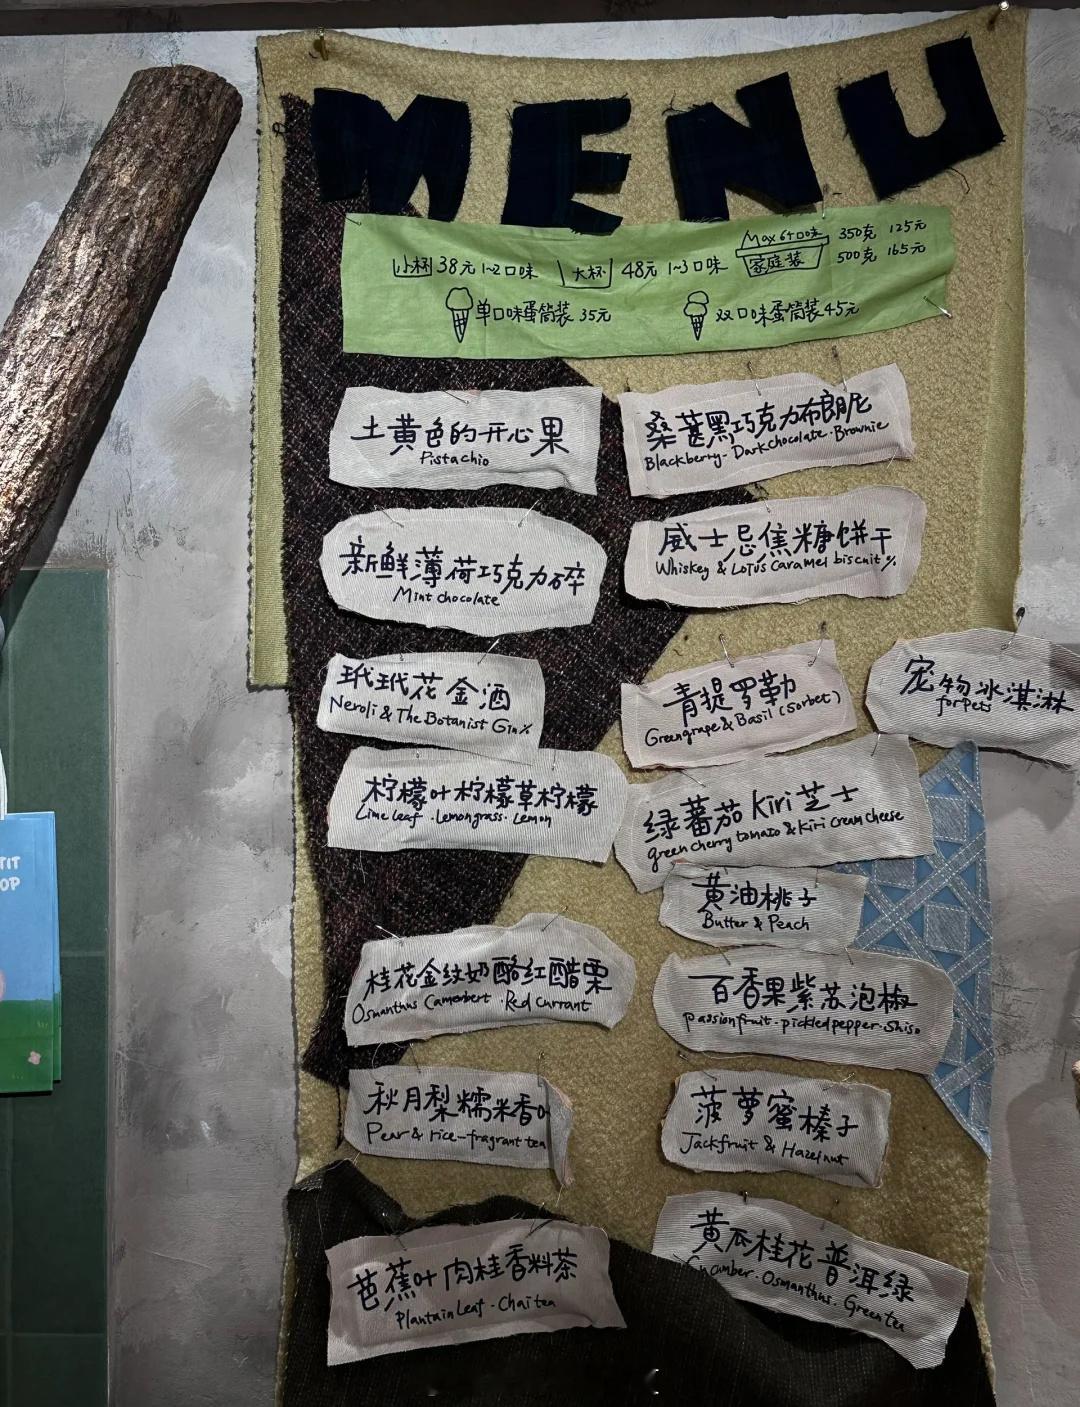 MENU
小杯 38元 1~2口味
大杯 48元 1~3口味
Max 6个口味
家庭装
350克 125元
500克 165元
单口味蛋筒装 35元
双口味蛋筒装 45元
土黄色的开心果
Pistachio
桑葚黑巧克力布朗尼
Blackberry · Dark chocolate · Brownie
新鲜薄荷巧克力碎
Mint chocolate
威士忌焦糖饼干
Whiskey & Lotus Caramel biscuit %
玳玳花金酒
Neroli & The Botanist Gin %
青提罗勒
Greengrape & Basil (Sorbet)
宠物冰淇淋
for pets
柠檬叶柠檬草柠檬
Lime leaf · Lemongrass · Lemon
绿蕃茄 Kiri 芝士
green cherry tomato & Kiri cream cheese
黄油桃子
Butter & Peach
桂花金纹奶酪红醋栗
Osmanthus Camembert · Red currant
百香果紫苏泡椒
Passionfruit · pickled pepper · Shiso
秋月梨糯米香
Pear & rice-fragrant tea
菠萝蜜榛子
Jackfruit & Hazelnut
芭蕉叶肉桂香料茶
Plantain Leaf · Chai tea
黄瓜桂花普洱绿
Cucumber · Osmanthus · Green tea
TIT
OP